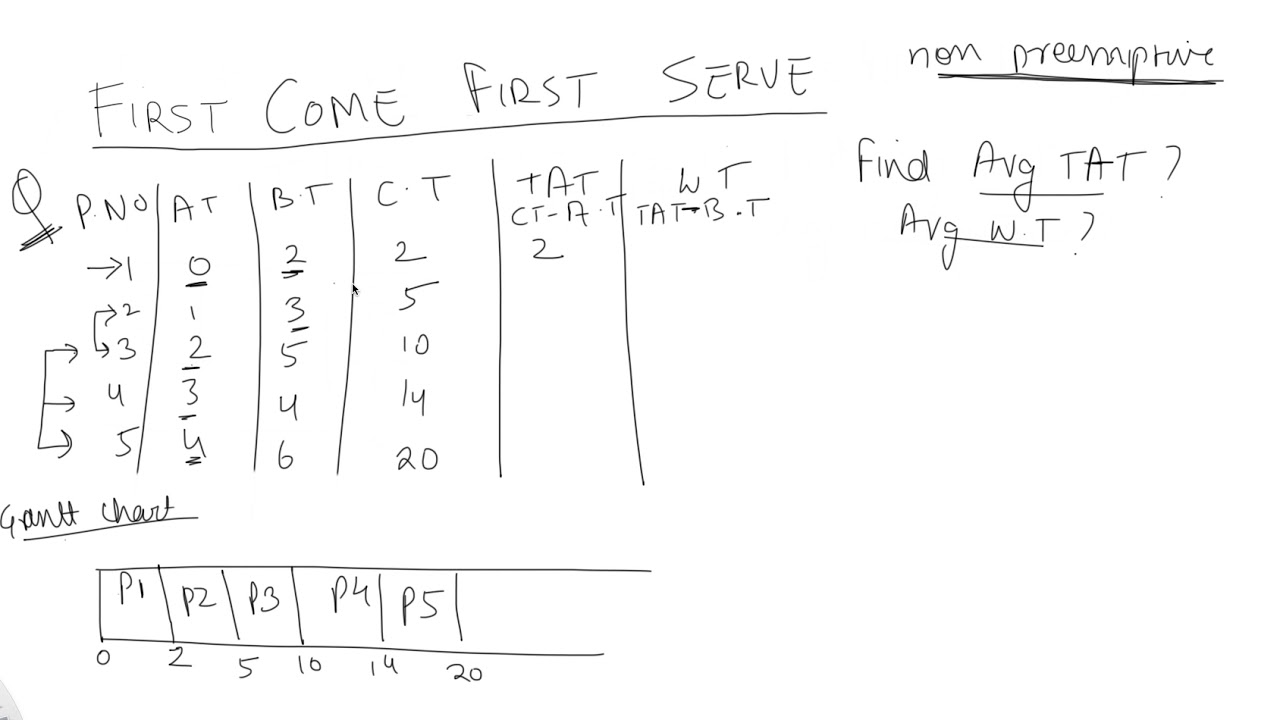 non preemptive
FIRST COME FIRST SERVE
Find Avg TAT?
Avg W.T?
Q
P.NO AT B.T C.T TAT WT
CT-A.T TAT-B.T
1 0 2 2 2
2 1 3 5
3 2 5 10
4 3 4 14
5 4 6 20
Grantt chart
P1 P2 P3 P4 P5
0 2 5 10 14 20